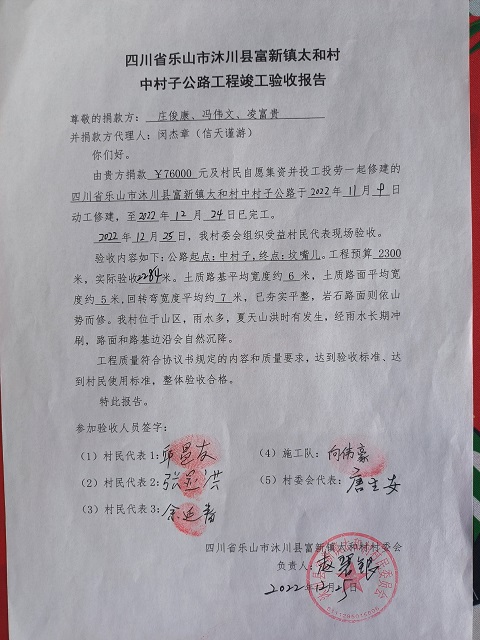 四川省乐山市沐川县富新镇太和村
中村子公路工程竣工验收报告
尊敬的捐款方：庄俊康、冯伟文、凌富贵
并捐款方代理人：闵杰章（信天谨游）
你们好。
由贵方捐款 ¥76000 元及村民自愿集资并投工投劳一起修建的
四川省乐山市沐川县富新镇太和村中村子公路于2022年11月9日
动工修建，至2022年12月24日已完工。
2022年12月25日，我村委会组织受益村民代表现场验收。
验收内容如下：公路起点：中村子，终点：坟嘴儿。工程预算 2300
米，实际验收2284米。土质路基平均宽度约 6 米，土质路面平均宽
度约 5 米，回转弯宽度平均约 7 米，已夯实平整，岩石路面则依山
势而修。我村位于山区，雨水多，夏天山洪时有发生，经雨水长期冲
刷，路面和路基边沿会自然沉降。
工程质量符合协议书规定的内容和质量要求，达到验收标准、达
到村民使用标准，整体验收合格。
特此报告。
参加验收人员签字：
（1）村民代表1：
（4）施工队：向伟豪
（2）村民代表2：张 洪
（5）村委会代表：唐生安
（3）村民代表3：余 青
四川省乐山市沐川县富新镇太和村村委会
负责人：赵 银
2022年12月25日